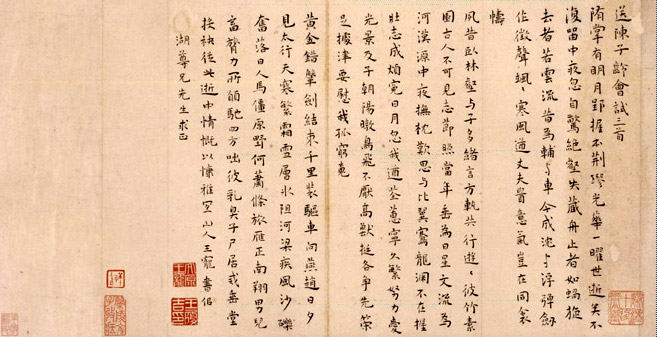 送陳子齡會試三首
隋掌有明月野握亦荊璆光華一曜世逝矣不
復留中夜忽自驚絕壑失藏舟止者如蝸旋
去者若雲流昔為輔与車今成沈与浮彈劍
作徵聲颯颯寒風遒丈夫貴意氣豈在同衾
幬
夙昔臥林壑与子多緒言方執共行遊遊彼竹素
園古人不可見志節照當年垂為日星文流為
河漢源中夜撫枕歎思与比翼騫龍淵不在握
壯志成煩冤日月忽我遒荃蕙寧久繁努力愛
光景及子朝陽暾鳥飛不厭高獸挺各爭先策
足據津要慰我孤窮
黃金錯鞶劍結束千里裝驅車向燕趙日夕
見太行天寒繁霜雪層冰阻河梁疾風沙礫
奮落日人馬僵原野何蕭條旅雁正南翔男兒
富膂力所願馳四方咄彼乳臭子尸居戒垂堂
接袂從此逝中情慨以慷雅宜山人王寵書似
湖尊兄先生求正